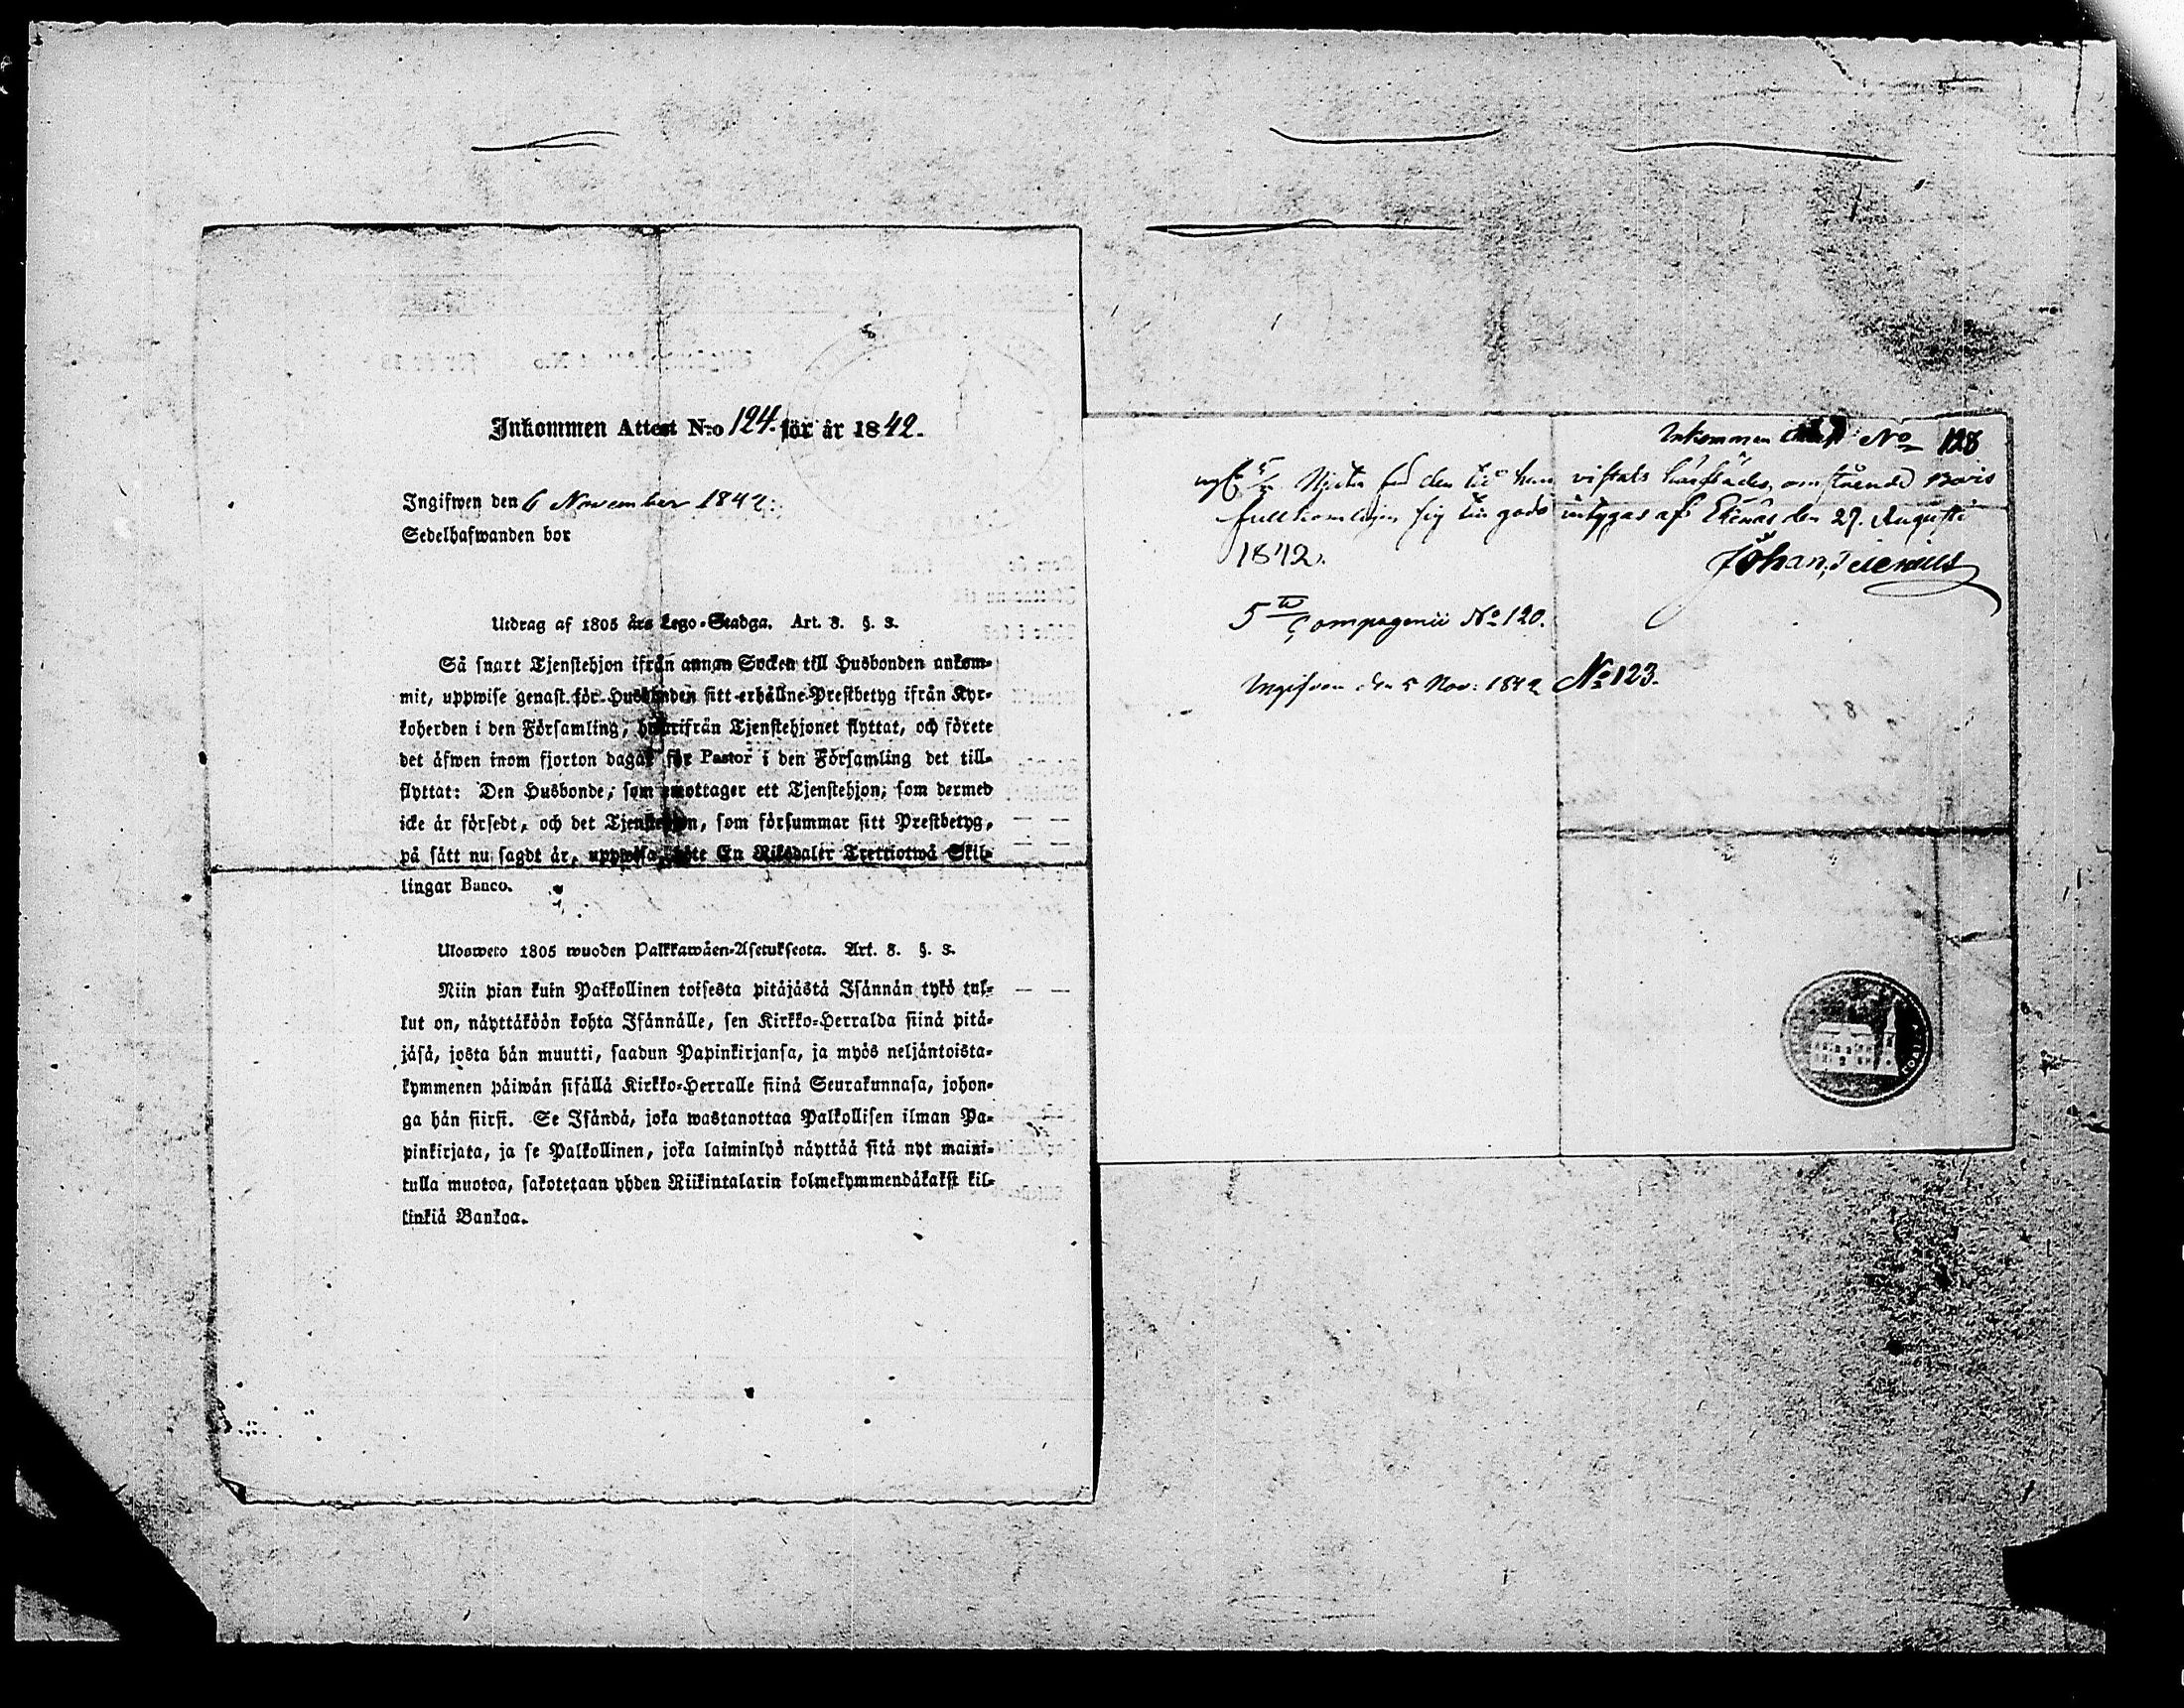 Inkommen Attest N:o 124. för år 1842.
Ingifwen den 6 November 1842.
Sedelhafwanden bor
Utdrag af 1805 års Lego-Stadga. Art. 8. §. 3.
Så snart Tjenstehjon ifrån annan Socken till Husbonden ankom-
mit, uppwise genast för Husbonden sitt erhållne Prestbetyg ifrån Kyr-
koherden i den Församling, hwarifrån Tjenstehjonet flyttat, och förete
det åfwen inom fjorton dagar för Pastor i den Församling det till-
flyttat: Den Husbonde, som emottager ett Tjenstehjon, som dermed
icke är försedt, och det Tjenstehjon, som försummar sitt Prestbetyg,
på sätt nu sagdt är, uppwisa, böte En Riksdaler Trettiotwå Skil-
lingar Banco.
Ulosweto 1805 wuoden Palkkawåen-Asetuksesta. Art. 8. §. 3.
Niin pian kuin Palkollinen toisesta pitåjåstå Isånnån tykö tul-
kut on, nåyttåköön kohta Isånnålle, sen Kirkko-Herralda siinå pitå-
jåså, josta hån muutti, saadun Papinkirjansa, ja myös neljåntoista-
kymmenen påiwån sisållå Kirkko-Herralle siinå Seurakunnasa, johon-
ga hån siirsi. Se Isåndå, joka wastanottaa Palkollisen ilman Pa-
pinkirjata, ja se Palkollinen, joka laiminlyö nåyttåå sitå nyt maini-
tulla muotoa, sakotetaan yhden Riikintalarin kolmekymmendåkaksi kil-
linkiå Bankoa.
Inkommen No 128
den tid han vistats härstädes, omstående
sig till godo intygas af Ekenäs den 27. Augusti
1842.
Johan
5te Compagnie No 120.
Ingifven den 5 Nov: 1842 No 123.